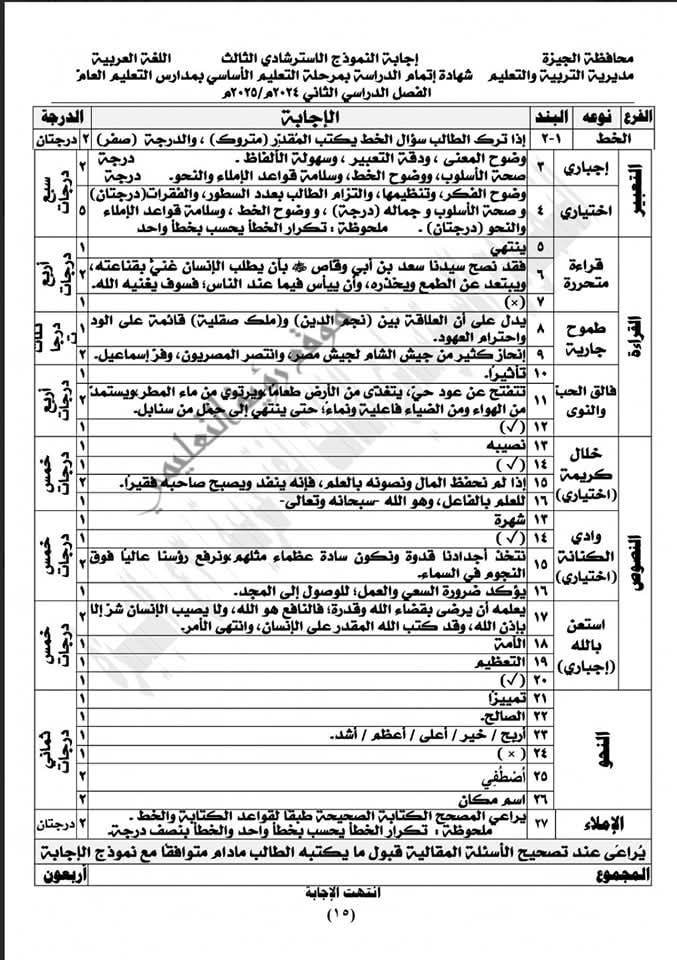 محافظة الجيزة إجابة النموذج الاسترشادي الثالث اللغة العربية
مديرية التربية والتعليم شهادة إتمام الدراسة بمرحلة التعليم الأساسي بمدارس التعليم العام
الفصل الدراسي الثاني ٢٠٢٤م/٢٠٢٥م
الفرع نوعه البند الإجابة الدرجة
الخط ١-٢ إذا ترك الطالب سؤال الخط يكتب المقدر (متروك) ، والدرجة (صفر) ٢ درجتان
التعبير إجباري ٣ وضوح المعنى ، ودقة التعبير ، وسهولة الألفاظ . درجة ٢ سبع درجات
صحة الأسلوب، ووضوح الخط، وسلامة قواعد الإملاء والنحو. درجة
اختياري ٤ وضوح الفكر، وتنظيمها، والتزام الطالب بعدد السطور، والفقرات(درجتان) ٥
و صحة الأسلوب و جماله (درجة) ، و وضوح الخط ، وسلامة قواعد الإملاء
والنحو (درجتان) . ملحوظة : تكرار الخطأ يحسب بخطأ واحد
القراءة قراءة متحررة ٥ ينتهي ١ أربع درجات
٦ فقد نصح سيدنا سعد بن أبي وقاص ﷺ بأن يطلب الإنسان غنيً بقناعته، ٢
ويبتعد عن الطمع ويحذره، وأن ييأس فيما عند الناس؛ فسوف يغنيه الله.
٧ (×) ١
طموح جارية ٨ يدل على أن العلاقة بين (نجم الدين) و(ملك صقلية) قائمة على الود ١ ثلاث درجات
واحترام العهود.
٩ إنحاز كثير من جيش الشام لجيش مصر، وانتصر المصريون، وفر إسماعيل. ٢
فالق الحب والنوى ١٠ تأثيرًا. ١ أربع درجات
١١ تتفتح عن عود حيّ، يتغذى من الأرض طعامًا،ويرتوي من ماء المطر،ويستمد ٢
من الهواء ومن الضياء فاعلية ونماءً؛ حتى ينتهي إلى حِمْل من سنابل.
١٢ (√) ١
النصوص خلال كريمة (اختياري) ١٣ نصيبه ١ خمس درجات
١٤ (√) ١
١٥ إذا لم نحفظ المال ونصونه بالعلم، فإنه ينفد ويصبح صاحبه فقيرًا. ٢
١٦ للعلم بالفاعل، وهو الله -سبحانه وتعالى- ١
وادي الكنانة (اختياري) ١٣ شهرة ١ خمس درجات
١٤ (√) ١
١٥ نتخذ أجدادنا قدوة ونكون سادة عظماء مثلهم،ونرفع رؤسنا عاليًا فوق ٢
النجوم في السماء.
١٦ يؤكد ضرورة السعي والعمل؛ للوصول إلى المجد. ١
استعن بالله (إجباري) ١٧ يعلمه أن يرضى بقضاء الله وقدرة؛ فالنافع هو الله، ولا يصيب الإنسان شرٌ إلا ٢ خمس درجات
بإذن الله، وقد كتب الله المقدر على الإنسان، وانتهى الأمر.
١٨ الأمة ١
١٩ التعظيم ١
٢٠ (√) ١
النحو ٢١ تمييزًا ١ ثماني درجات
٢٢ الصالح. ١
٢٣ أربح / خير / أعلى / أعظم / أشد. ١
٢٤ (×) ١
٢٥ أُصْطُفِي ٢
٢٦ اسم مكان ٢
الإملاء ٢٧ يراعي المصحح الكتابة الصحيحة طبقًا لقواعد الكتابة والخط . ٢ درجتان
ملحوظة : تكرار الخطأ يحسب بخطأ واحد والخطأ بنصف درجة.
يُراعَى عند تصحيح الأسئلة المقالية قبول ما يكتبه الطالب مادام متوافقًا مع نموذج الإجابة
المجموع أربعون
انتهت الإجابة
(١٥)
موقع رؤية التعليمي